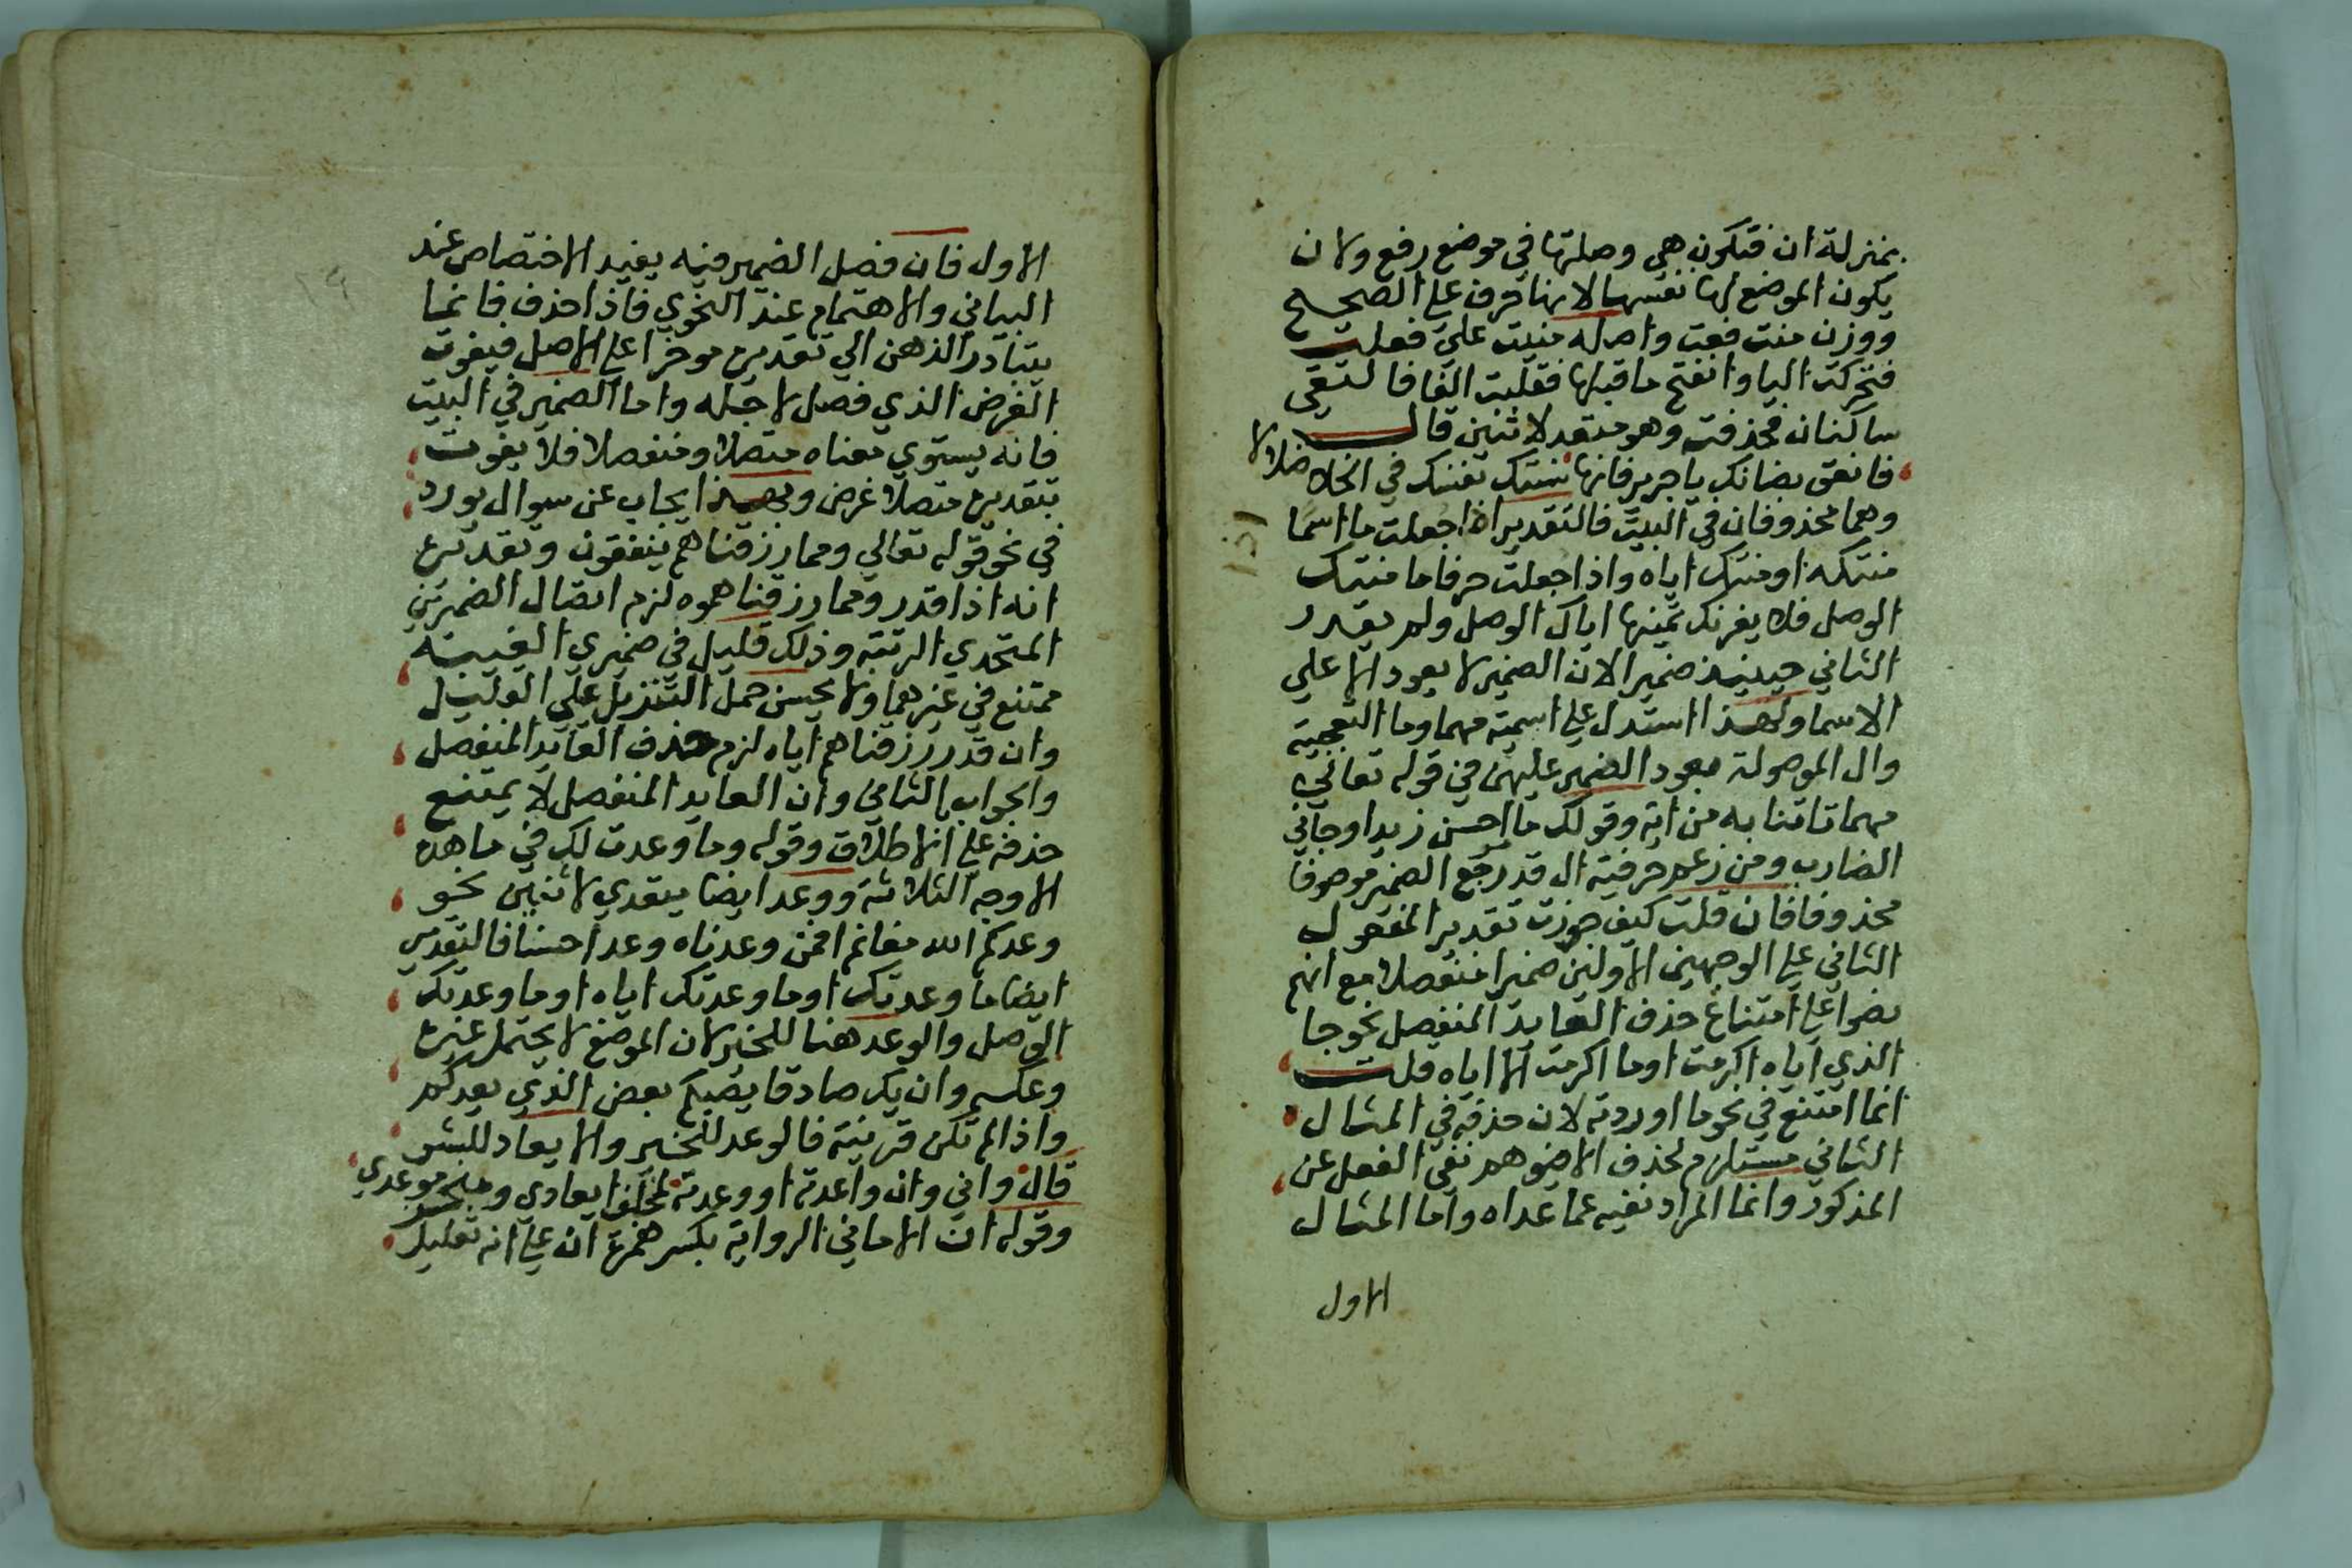 بمنزلة ان فتكون هي وصلتها في موضع رفع ولا ان
يكون الموضع لها نفسها لانها حرف على الصحيح
ووزن منت فعت واصله منيت على فعلت
فتحركت اليا وانفتح ما قبلها فقلبت الفا فالتقى
ساكنان فحذفت وهو متعد لاثنين قال
فانعق بضانك يا جرير فانها منتك نفسك في الخلا ضلالا
وهما محذوفان في البيت فالتقدير اذا جعلت ما اسما
منتكه او منتك اياه واذا جعلت حرفا ما منتك
الوصل فلا يغرنك تمنيها اياك الوصل ولم يقدر
الثاني حينيذ ضمير الان الضمير لا يعود الا على
الاسما ولهذا استدل على اسمية مهما وما التعجبية
وال الموصولة بعود الضمير عليهن في قوله تعالى
مهما تاتنا به من اية وقولك ما احسن زيدا وجاني
الضارب ومن زعم حرفية ال قدر رجع الضمير موصوفا
محذوفا فان قلت كيف جوزت تقدير المفعول
الثاني على الوجهين الاولين ضميرا منفصلا مع انهم
نصوا على امتناع حذف العايد المنفصل نحو جا
الذي اياه اكرمت او ما اكرمت الا اياه قلت
انما امتنع في نحو ما اوردته لان حذفه في المثال
الثاني مستلزم لحذف الا فيوهم نفي الفعل عن
المذكور وانما المراد نفيه عما عداه واما المثال
الاول
اذا
الاول فان فصل الضمير فيه يفيد الاختصاص عند
البياني والاهتمام عند النحوي فاذا حذف فانما
يتبادر الذهن الى تقديره موخرا على الاصل فيفوت
الغرض الذي فصل لاجله واما الضمير في البيت
فانه يستوي معناه متصلا ومنفصلا فلا يفوت
بتقديره متصلا غرض وبهذا يجاب عن سوال يورد
في نحو قوله تعالى ومما رزقناهم ينفقون وتقديره
انه اذا قدر ومما رزقناهموه لزم اتصال الضميرين
المتحدي الرتبة وذلك قليل في ضميري الغيبة
ممتنع في غيرهما ولا يحسن حمل التنزيل على القليل
وان قدر رزقناهم اياه لزم حذف العايد المنفصل
والجواب الثاني وان العايد المنفصل لا يمتنع
حذفه على الاطلاق وقوله وما وعدت لك في ما هذه
الاوجه الثلاثة ووعد ايضا يتعدي لاثنين نحو
وعدكم الله مغانم افمن وعدناه وعدا حسنا فالتقدير
ايضا ما وعدتكه او ما وعدتك اياه او ما وعدتك
الوصل والوعد هنا للخير لان الموضع لا يحتمل غيره
وعكسه وان يك صادقا يصبكم بعض الذي يعدكم
واذا لم تكن قرينة فالوعد للخير والايعاد للشر
قال واني وان واعدته او وعدته لمخلف ايعادي ومنجز موعدي
وقوله ان الاماني الرواية بكسر همزة ان على انه تعليل